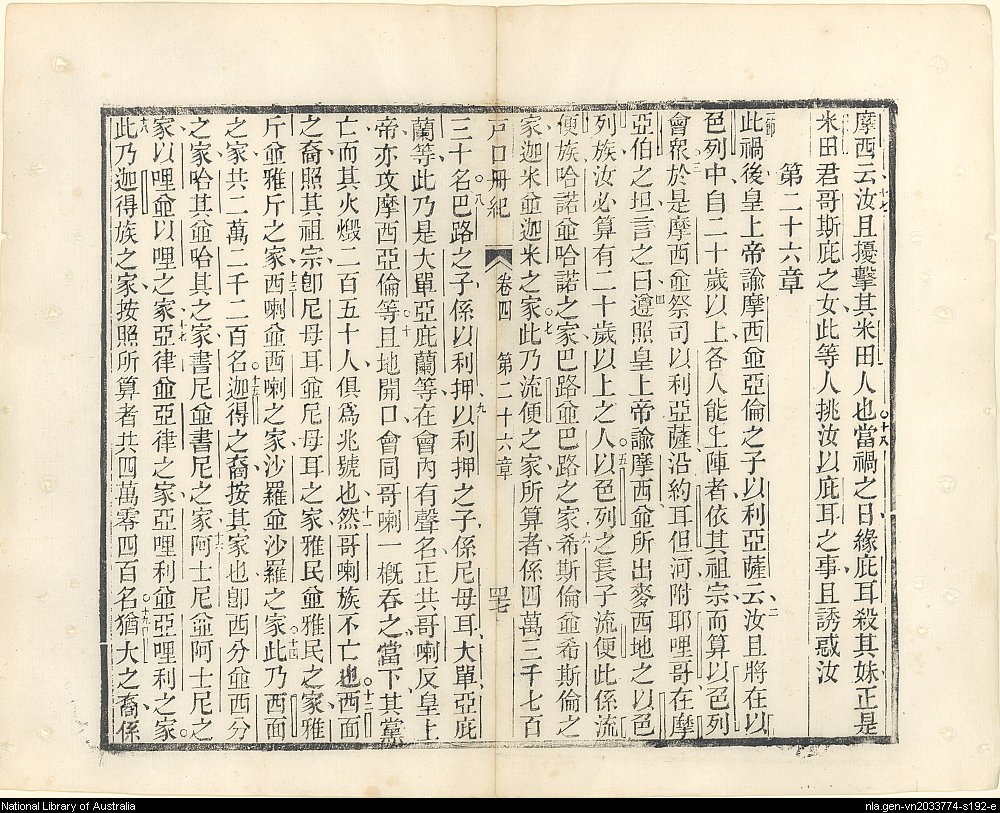 摩西云汝且擾擊其米田人也當禍之日緣庇耳殺其妹正是
米田君哥斯庇之女此等人挑汝以庇耳之事且誘惑汝
第二十六章
此禍後皇上帝諭摩西並亞倫之子以利亞薩云汝且將在以
色列中自二十歲以上各人能上陣者依其祖宗而算以色列
會眾於是摩西並祭司以利亞薩沿約耳但河附耶哩哥在摩
亞伯之坦言之曰遵照皇上帝諭摩西並所出麥西地之以色
列族汝必算有二十歲以上之人以色列之長子流便此係流
便族哈諾並哈諾之家巴路並巴路之家希斯倫並希斯倫之
家迦米並迦米之家此乃流便之家所算者係四萬三千七百
戶口冊紀 卷四 第二十六章 四七
三十名巴路之子係以利押以利押之子係尼母耳大單亞庇
蘭等此乃是大單亞庇蘭等在會內有聲名正共哥喇反皇上
帝亦攻摩西亞倫等且地開口會同哥喇一概吞之當下其黨
亡而其火燬二百五十人俱為兆號也然哥喇族不亡也西面
之裔照其祖宗卽尼母耳並尼母耳之家雅民並雅民之家雅
斤並雅斤之家西喇並西喇之家沙羅並沙羅之家此乃西面
之家共二萬二千二百名迦得之裔按其家也卽西分並西分
之家哈其並哈其之家書尼並書尼之家阿士尼並阿士尼之
家以哩並以哩之家亞律並亞律之家亞哩利並亞哩利之家
此乃迦得族之家按照所算者共四萬零四百名猶大之裔係
National Library of Australia
nla.gen-vn2033774-s192-e